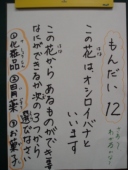 もんだい 12
この花は、オシロイバナと
いいます
この花から あるものができます
なにができるか次の3つから
選びなさい。
①化粧品 ②目薬 ③お菓子